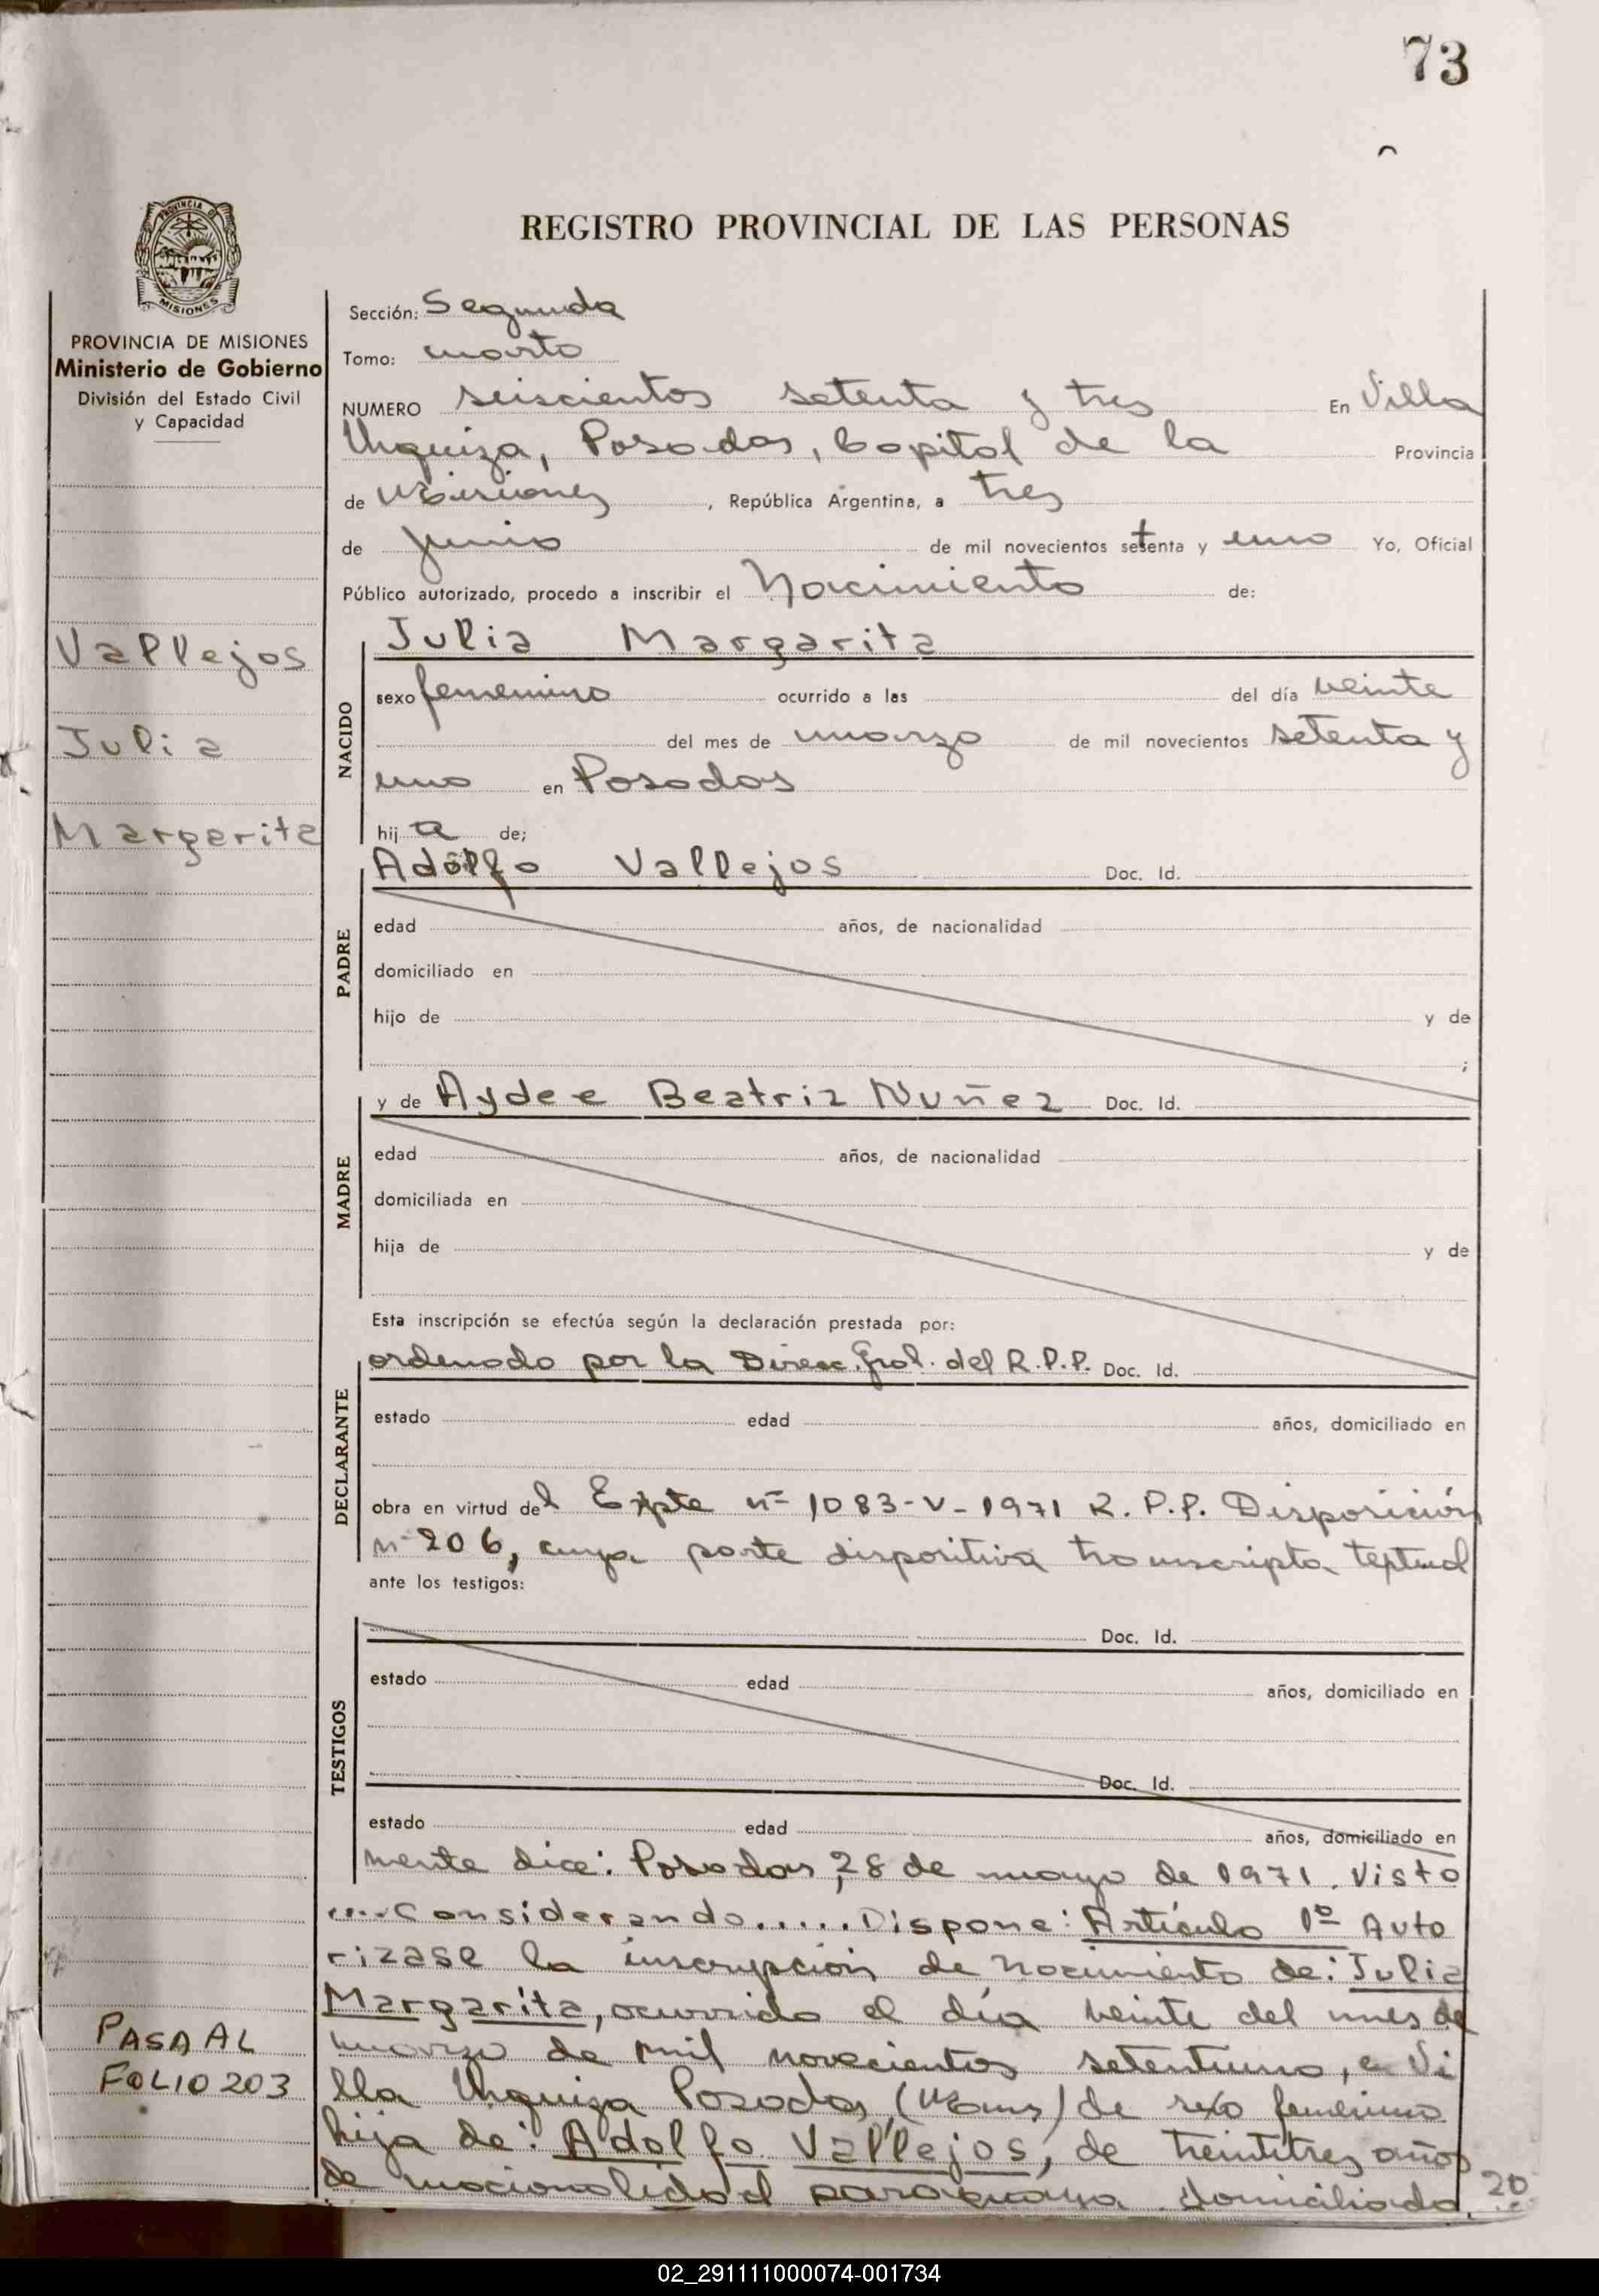 73
REGISTRO PROVINCIAL DE LAS PERSONAS
PROVINCIA DE MISIONES
PROVINCIA DE MISIONES
Ministerio de Gobierno
División del Estado Civil
y Capacidad
Vallejos
Julia
Margarita
PASA AL
FOLIO 203
Sección: Segunda
Tomo: cuarto
NUMERO seiscientos setenta y tres En Villa
Urquiza, Posadas, Capital de la Provincia
de Misiones, República Argentina, a tres
de junio de mil novecientos setenta y uno Yo, Oficial
Público autorizado, procedo a inscribir el Nacimiento de:
NACIDO
Julia Margarita
sexo femenino ocurrido a las del día veinte
del mes de marzo de mil novecientos setenta y
uno en Posadas
hija de;
PADRE
Adolfo Vallejos Doc. Id.
edad años, de nacionalidad
domiciliado en
hijo de y de
;
MADRE
y de Aydee Beatriz Nuñez Doc. Id.
edad años, de nacionalidad
domiciliada en
hija de y de
Esta inscripción se efectúa según la declaración prestada por:
DECLARANTE
ordenado por la Direcc. Gral. del R.P.P. Doc. Id.
estado edad años, domiciliado en
obra en virtud del Expte nº 1083-V-1971 R.P.P. Disposición
nº 206, cuya parte dispositiva transcripta textual
ante los testigos:
TESTIGOS
Doc. Id.
estado edad años, domiciliado en
Doc. Id.
estado edad años, domiciliado en
mente dice: Posadas, 28 de mayo de 1971. Visto
....Considerando..... Dispone: Artículo 1º Auto
rizase la inscripción de nacimiento de: Julia
Margarita, ocurrido el día veinte del mes de
marzo de mil novecientos setentiuno, en Vi
lla Urquiza Posadas (Mnes) de sexo femenino
hija de: Adolfo Vallejos, de treintitres años
de nacionalidad paraguaya domiciliado
20
02_291111000074-001734